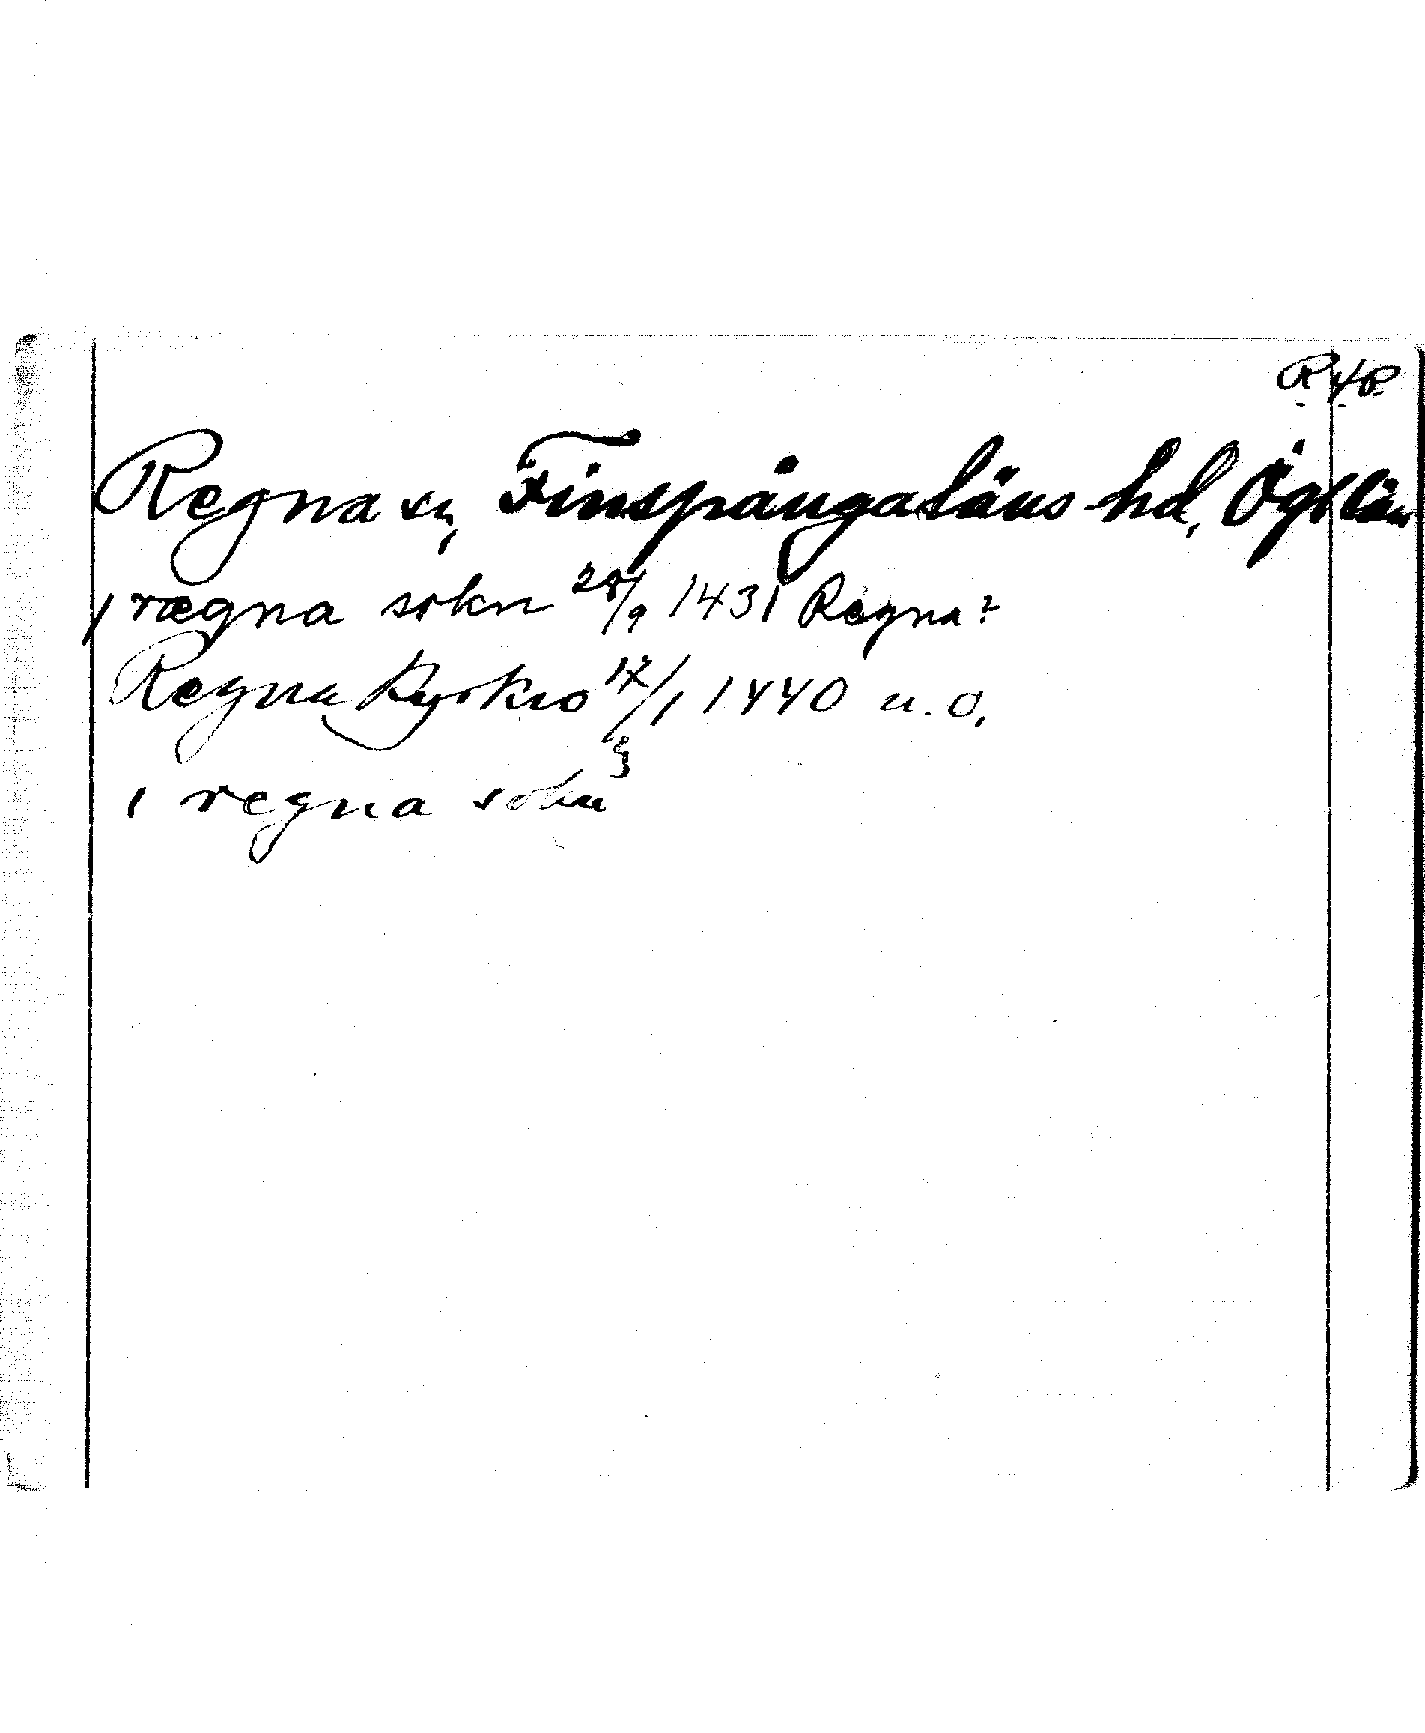 Regna sn, Finspångaläns hd, Ögl län
i rægna sokn 28/9 1431 Regna?
Regna Kyrkio 17/1 1440 u.o.
i regna sokn